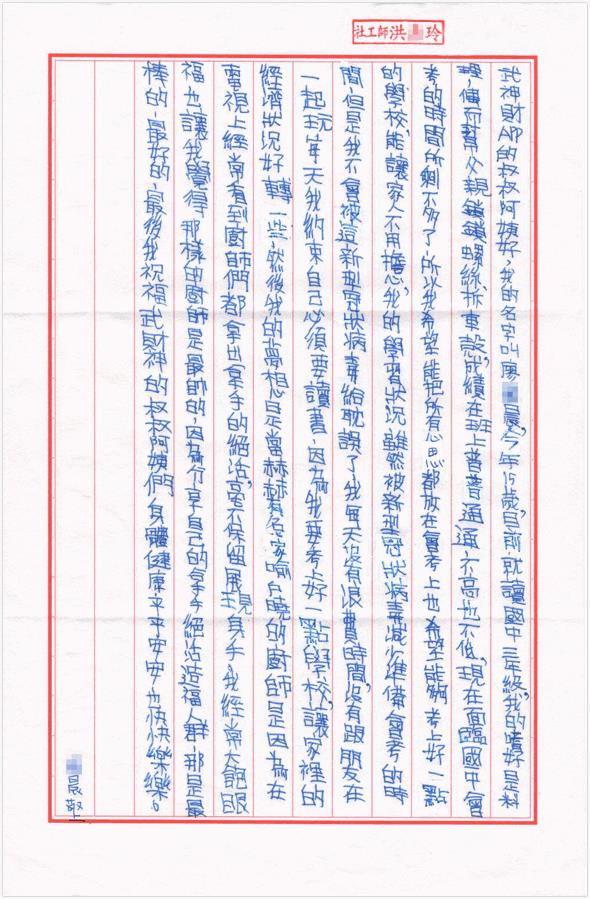 社工師洪玲
武神財APP的叔叔阿姨好，我的名字叫廖晨，今年15歲，目前就讀國中三年級，我的嗜好是料
理，偶而幫父親鎖鎖螺絲，拆車殼，成績在班上普普通通，不高也不低，現在面臨國中會
考的時間所剩不多了，所以我希望能把所有心思都放在會考上也希望能夠考上好一點
的學校，能讓家人不用擔心我的學習狀況，雖然被新型冠狀病毒減少準備會考的時
間，但是我不會被這新型冠狀病毒給耽誤了，我每天沒有浪費時間，沒有跟朋友在
一起玩，每天我約束自己必須要讀書，因為我要考上好一點學校，讓家裡的
經濟狀況好轉一些，然後我的夢想是當赫赫有名家喻戶曉的廚師，是因為在
電視上經常看到廚師們都拿出拿手的絕活，毫不保留展現身手，我經常大飽眼
福，也讓我覺得那樣的廚師是最帥的，因為分享自己的拿手絕活造福人群，那是最
棒的，最好的，最後我祝福武財神的叔叔阿姨們身體健康平平安安也快快樂樂。
晨敬上